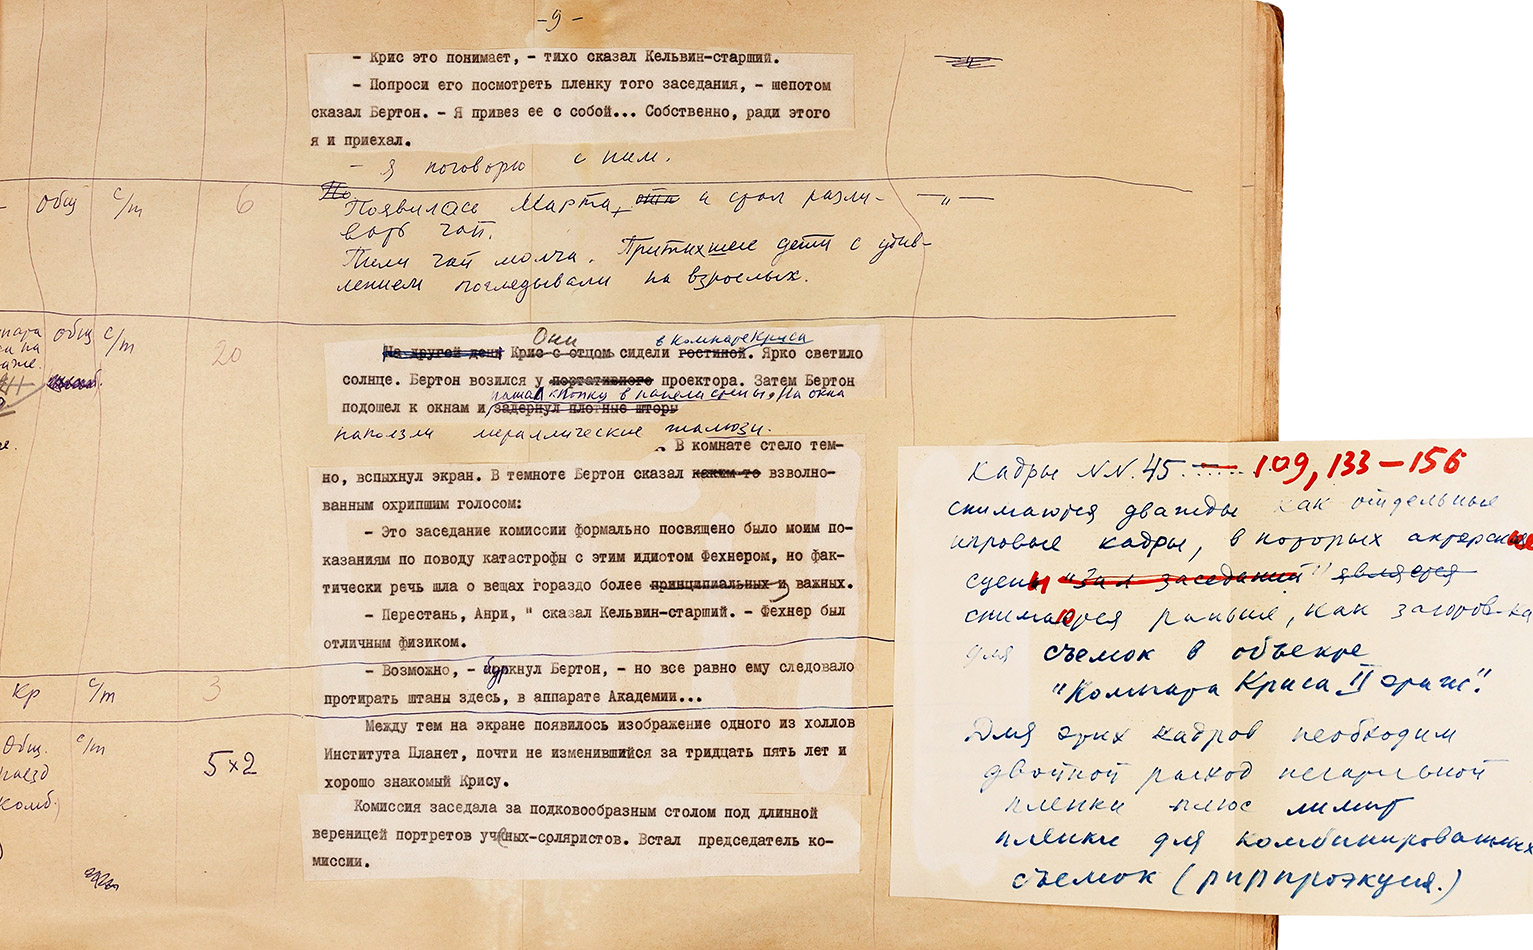 -9-
- Крис это понимает, - тихо сказал Кельвин-старший.
- Попроси его посмотреть пленку того заседания, - шепотом
сказал Бертон. - Я привез ее с собой... Собственно, ради этого
я и приехал.
- Я поговорю с ним.
Общ с/т 6 Появилась Марта, и стал разли- —"—
вать чай.
Пили чай молча. Притихшие дети с удив-
лением поглядывали на взрослых.
общ с/т 20
Они в комнате Криса
На другой день Крис с отцом сидели гостиной. Ярко светило
солнце. Бертон возился у портативного проектора. Затем Бертон
нажал кнопку в панели стены, На окна
подошел к окнам и задернул плотные шторы
наползли металлические жалюзи.
. В комнате стело тем-
но, вспыхнул экран. В темноте Бертон сказал каким-то взволно-
ванным охрипшим голосом:
- Это заседание комиссии формально посвящено было моим по-
казаниям по поводу катастрофы с этим идиотом Фехнером, но фак-
тически речь шла о вещах гораздо более принципиальных и важных.
- Перестань, Анри, " сказал Кельвин-старший. - Фехнер был
отличным физиком.
- Возможно, - буркнул Бертон, - но все равно ему следовало
Кр с/т 3
протирать штаны здесь, в аппарате Академии...
Между тем на экране появилось изображение одного из холлов
Общ. с/т 5×2
Института Планет, почти не изменившийся за тридцать пять лет и
хорошо знакомый Крису.
Комб.
Комиссия заседала за подковообразным столом под длинной
вереницей портретов учёных-соляристов. Встал председатель ко-
миссии.
Кадры NN. 45 — 109, 133-156
снимаются дважды как отдельные
игровые кадры, в которых актерские
сцены "Зал заседаний" является
снимаются раньше, как заготовка
для съемок в объекте
"Комната Криса II этаж".
Для этих кадров необходим
двойной расход негативной
пленки плюс лимит
пленки для комбинированных
съемок (рирпроэкция.)